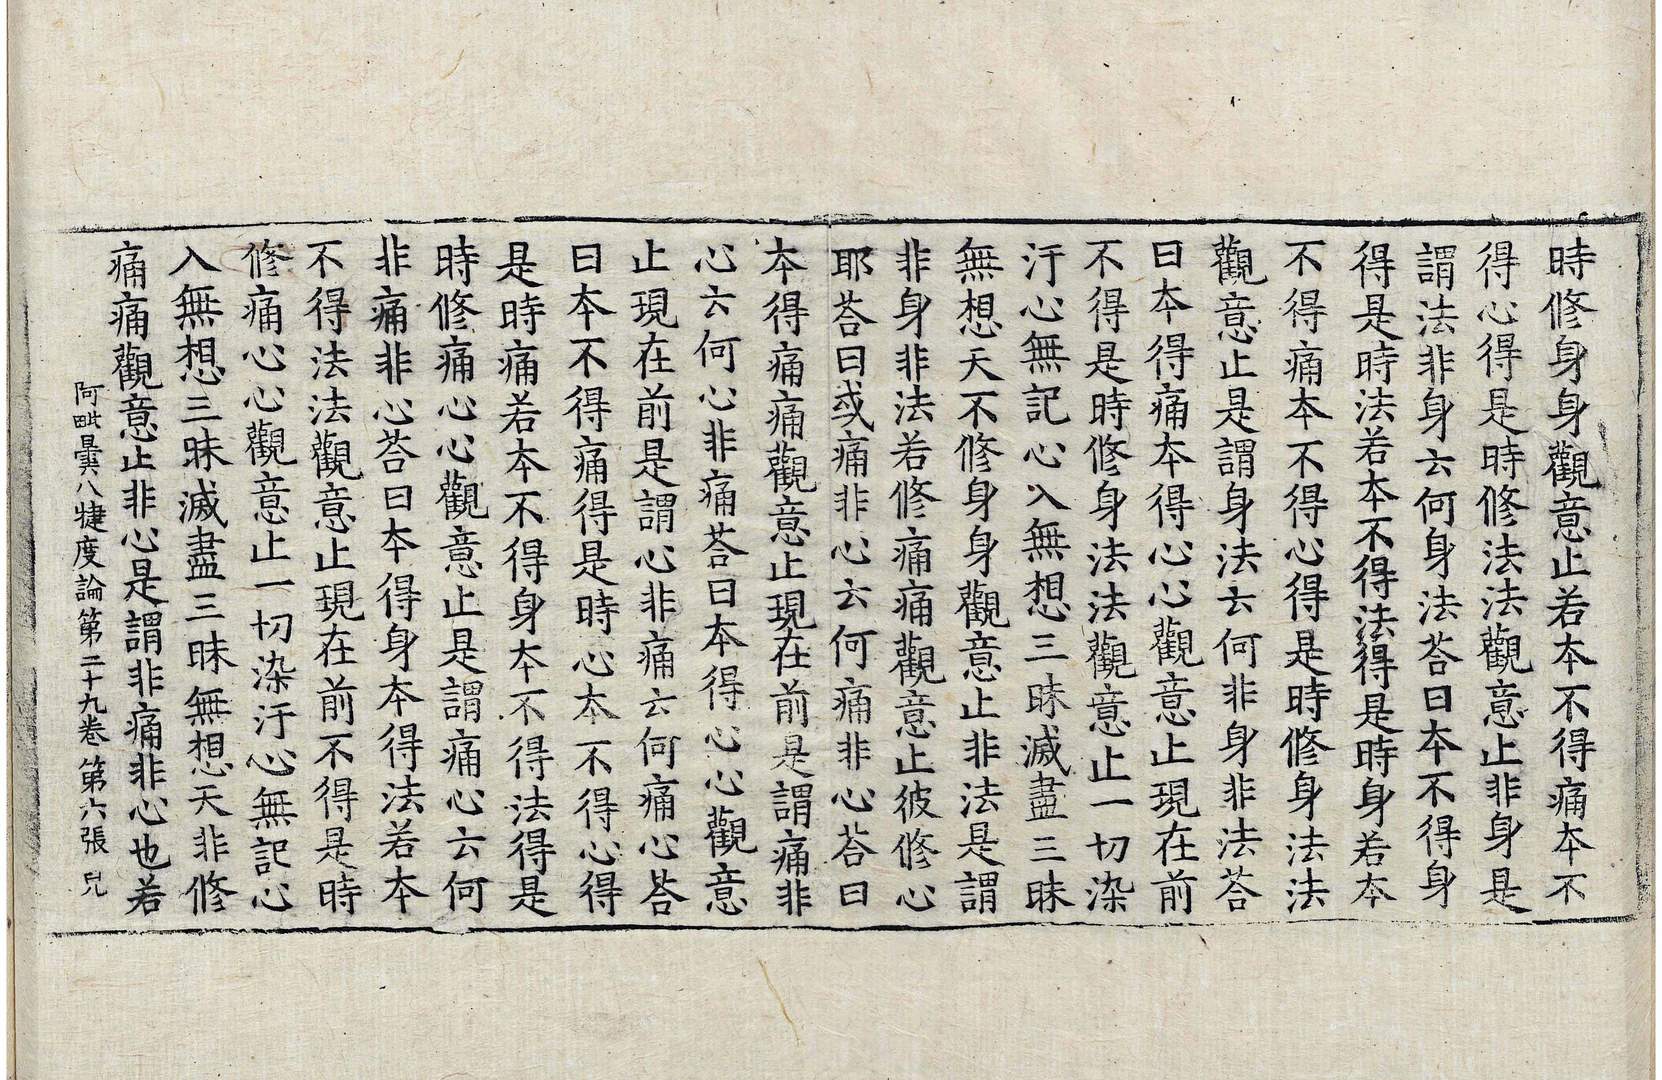 時修身身觀意止若本不得痛本不
得心得是時修法法觀意止非身是
謂法非身云何身法荅曰本不得身
得是時法若本不得法得是時身若本
不得痛本不得心得是時修身法法
觀意止是謂身法云何非身非法荅
曰本得痛本得心心觀意止現在前
不得是時修身法法觀意止一切染
汙心無記心入無想三昧滅盡三昧
無想天不修身身觀意止非法是謂
非身非法若修痛痛觀意止彼修心
耶荅曰或痛非心云何痛非心荅曰
本得痛痛觀意止現在前是謂痛非
心云何心非痛荅曰本得心心觀意
止現在前是謂心非痛云何痛心荅
曰本不得痛得是時心本不得心得
是時痛若本不得身本不得法得是
時修痛心心觀意止是謂痛心云何
非痛非心荅曰本得身本得法若本
不得法法觀意止現在前不得是時
修痛心心觀意止一切染汙心無記心
入無想三昧滅盡三昧無想天非修
痛痛觀意止非心是謂非痛非心也若
阿毗曇八犍度論第二十九卷 第六張 皃